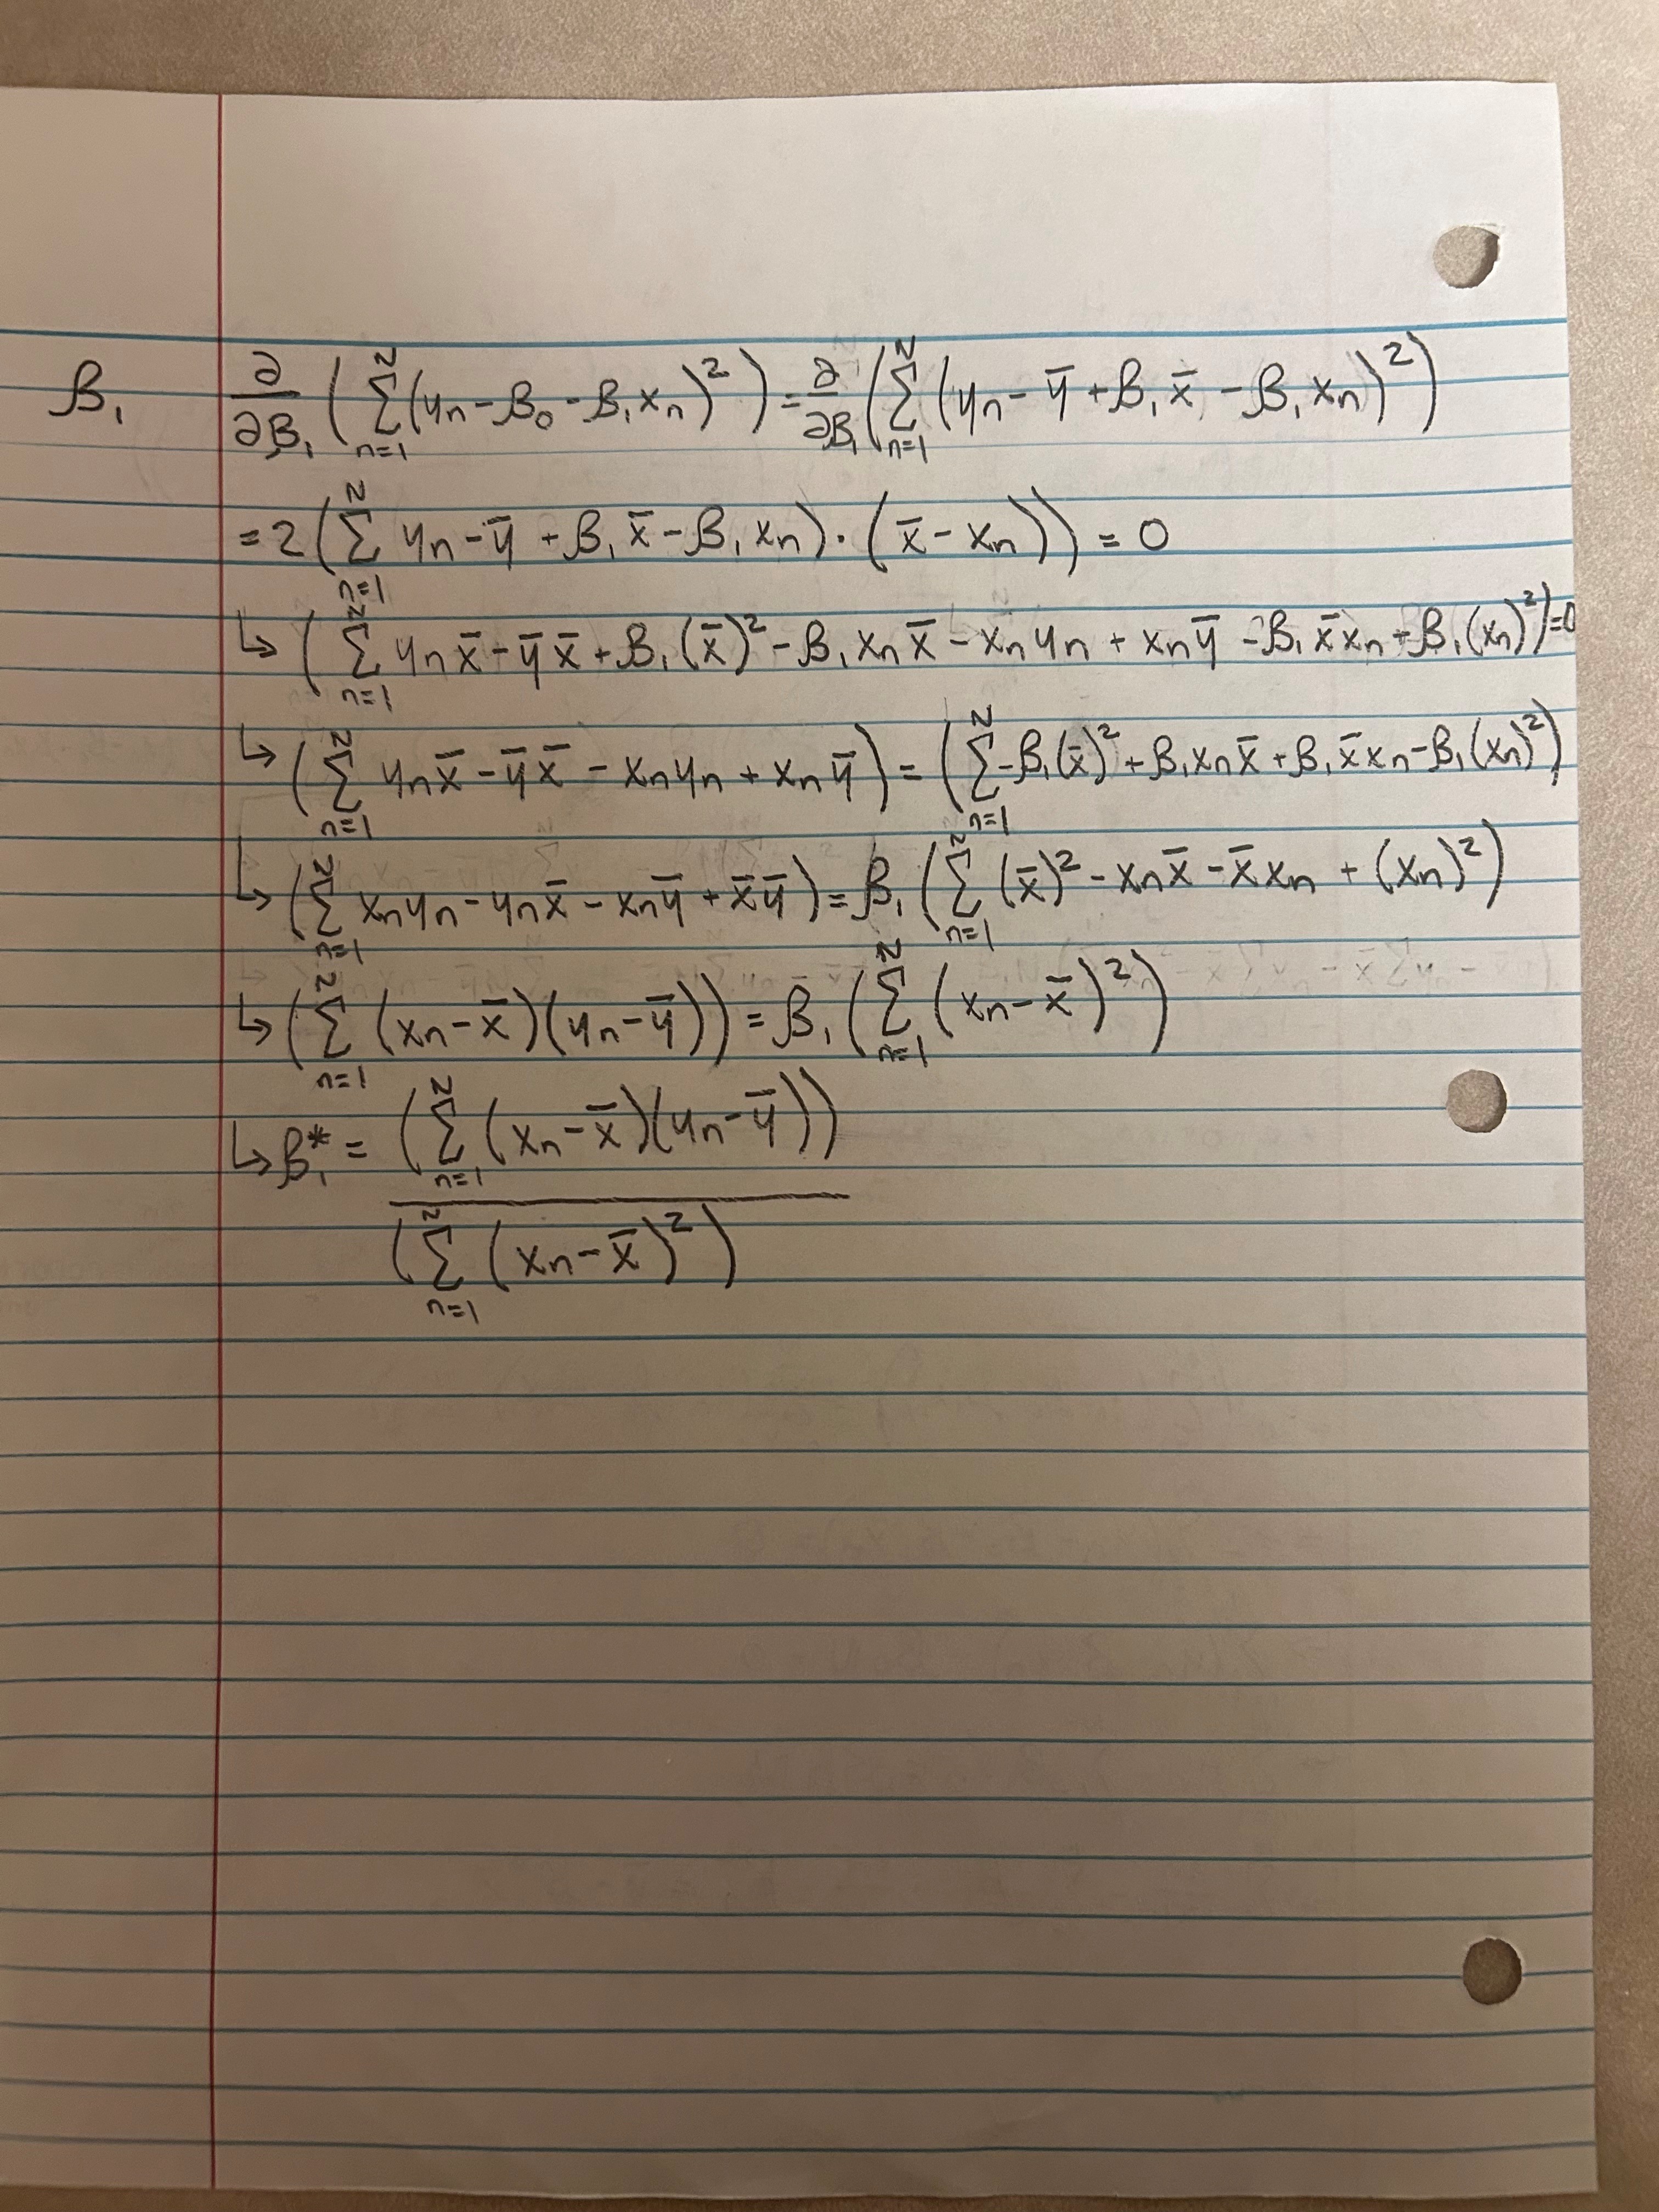 β₁ ∂/∂β₁ (∑ₙ₌₁ᴺ (yₙ - β₀ - β₁xₙ)²) = ∂/∂β₁ (∑ₙ₌₁ᴺ (yₙ - ȳ + β₁x̄ - β₁xₙ)²)
= 2(∑ₙ₌₁ᴺ yₙ - ȳ + β₁x̄ - β₁xₙ) · (x̄ - xₙ)) = 0
↳ (∑ₙ₌₁ᴺ yₙx̄ - ȳx̄ + β₁(x̄)² - β₁xₙx̄ - xₙyₙ + xₙȳ - β₁x̄xₙ + β₁(xₙ)²) = 0
↳ (∑ₙ₌₁ᴺ yₙx̄ - ȳx̄ - xₙyₙ + xₙȳ) = (∑ₙ₌₁ᴺ -β₁(x̄)² + β₁xₙx̄ + β₁x̄xₙ - β₁(xₙ)²)
↳ (∑ₙ₌₁ᴺ xₙyₙ - yₙx̄ - xₙȳ + x̄ȳ) = β₁(∑ₙ₌₁ᴺ (x̄)² - xₙx̄ - x̄xₙ + (xₙ)²)
↳ (∑ₙ₌₁ᴺ (xₙ - x̄)(yₙ - ȳ)) = β₁(∑ₙ₌₁ᴺ (xₙ - x̄)²)
↳ β₁* = (∑ₙ₌₁ᴺ (xₙ - x̄)(yₙ - ȳ))
(∑ₙ₌₁ᴺ (xₙ - x̄)²)